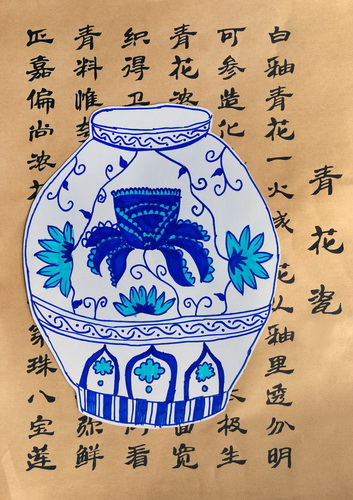 青花瓷
白釉青花一火成 花从釉里透分明
可参造化 极生
青花浓 面宽
织得卫 看
青料惟 弥鲜
正嘉偏尚浓 珠八宝莲